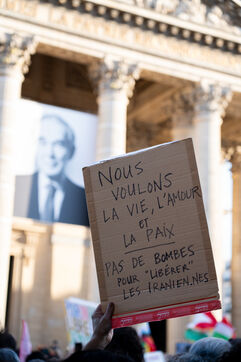 NOUS
VOULONS
LA VIE, L'AMOUR
ET
LA PAIX
PAS DE BOMBES
POUR "LIBÉRER"
LES IRANIEN.NES